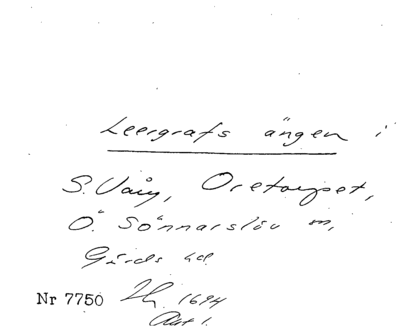 Leergrafs ängen i
S. Vång, Oretorpet,
Ö. Sönnarslöv m,
Gärds hd
Nr 7750 1694